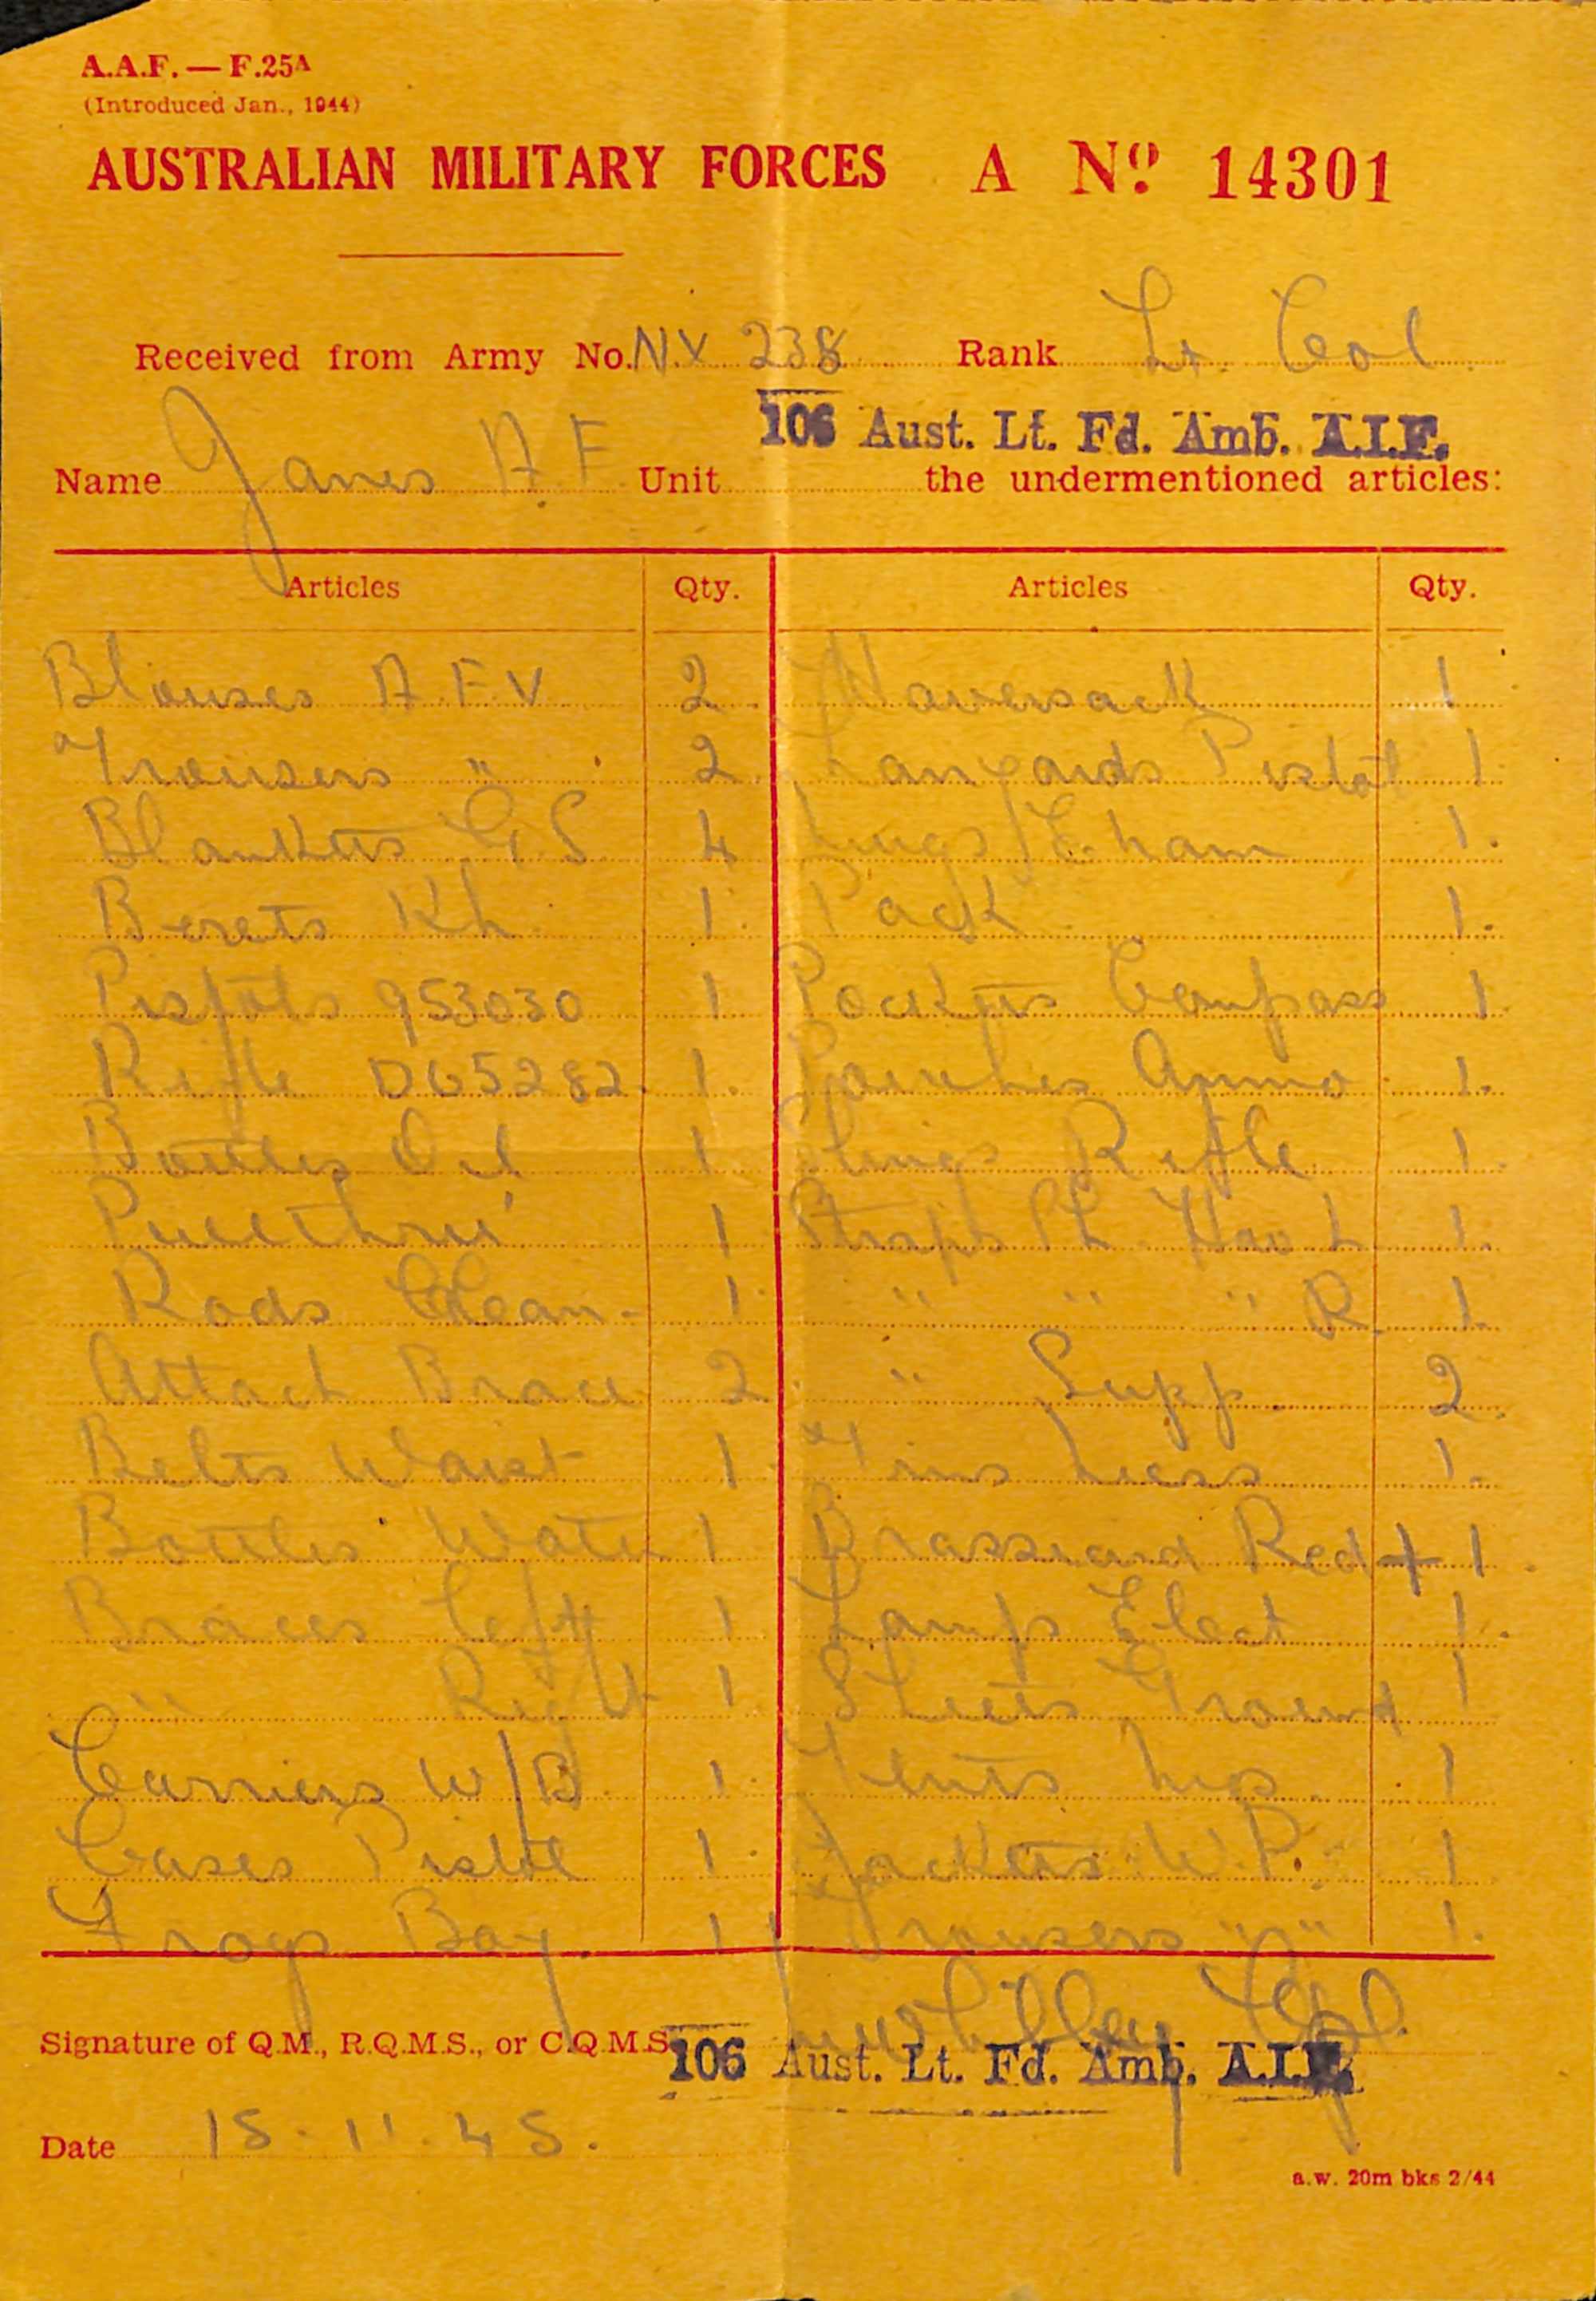 A.A.F. — F.25A
(Introduced Jan., 1944)
AUSTRALIAN MILITARY FORCES A Nº 14301
Received from Army No. NX 238 Rank Lt. Col.
106 Aust. Lt. Fd. Amb. A.I.F.
Name James A.F. Unit the undermentioned articles:
Articles Qty. Articles Qty.
Blouses A.F.V. 2 Haversack 1
Trousers " 2 Lanyards Pistol 1
Blankets G.S 4 1
Berets Kh. 1 Pack 1
Pistols 953030 1 Pockets Compass 1
Rifle D65282 1 Pouches Ammo 1
Bottles Oil 1 Slings Rifle 1
Pullthru' 1 Straps Hav L 1
Rods Clean 1 " " " R 1
Attach Brace 2 " Supp 2
Belts Waist 1 Tins Mess 1
Bottles Water 1 Brassard Red + 1
Braces Left 1 Lamps Elect 1
" Right 1 Sheets Ground 1
Carriers W/B 1 Tents 1
Cases Pistol 1 Jackets W.P. 1
Frogs Bay. 1 Trousers " " 1
Signature of Q.M., R.Q.M.S., or C.Q.M.S.
106 Aust. Lt. Fd. Amb. A.I.F.
Date 15.11.45.
a.w. 20m bks 2/44